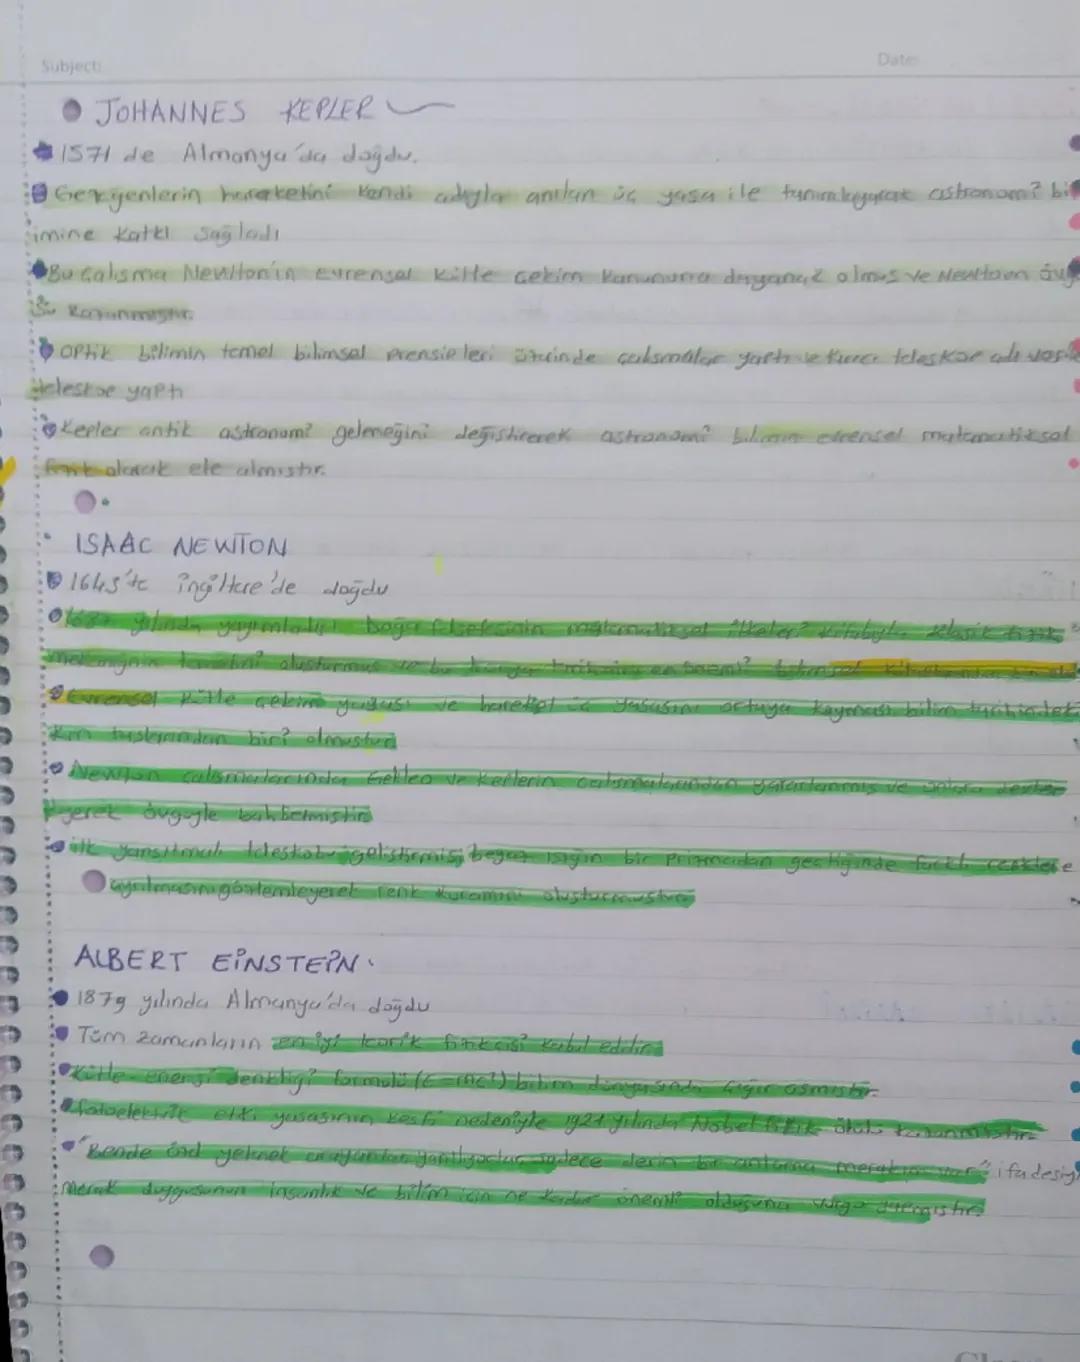 Subject:
Date:
JOHANNES KEPLER
1571 de Almanya'da doğdu.
Gezegenlerin hareketini kendi adıyla anılan üç yasa ile tanımlayarak astronomi bil
imine katkı sağladı
Bu calısma Newton'in evrensel kütle cekim kanununa dayanak olmus ve Newtoon övg
kazanmıştır.
OPtik bilimin temel bilimsel prensipleri üzerinde calısmalar yaptı ve teleskop adı
teleskop yaptı
Kepler antik astronomi geleneğini değiştirerek astronomi bilimin evrensel matematiksel
fizik olarak ele almıstır.
ISAAC NEWTON
1643'te ingiltere'de doğdu
1687 yılında yayımladığı doğa felsefesinin matematiksel ilkeleri kitabıyla klasik fizik
mekaniğinin temelini olusturmus ve bu en önemli bilimsel
Evrensel kütle cekim yasası ve hareket üc yasasını ortaya koyması bilim tarihindeki
taslarından biri olmustur
Newton calısmalarında ve Keplerin calısmalarından yararlanmıs ve
övgüyle bahsetmistir
ilk yansıtmalı teleskobu gelistirmis, beyaz ısığın bir prizmadan gectiğinde farklı renklere
ayrılmasını gözlemleyerek renk kuramını olusturmustur
ALBERT EİNSTEİN.
1879 yılında Almanya'da doğdu
Tüm zamanların en iyi teorik fizikcisi kabul edilir
Kütle-enerji denkliği formülü (E=mc²) bilim dünyasında cığır asmıstır.
fotoelektrik etki yasasının kesfi nedeniyle 1921 yılında Nobel fizik ödülü kazanmıstır.
"Bende özel yetenek arayanlar yanılıyorlar, sadece derin bir anlama merakım var" ifadesiyl
merak duygusunun insanlık ve bilim icin ne kadar önemli olduğuna vurgu yapmıstır.